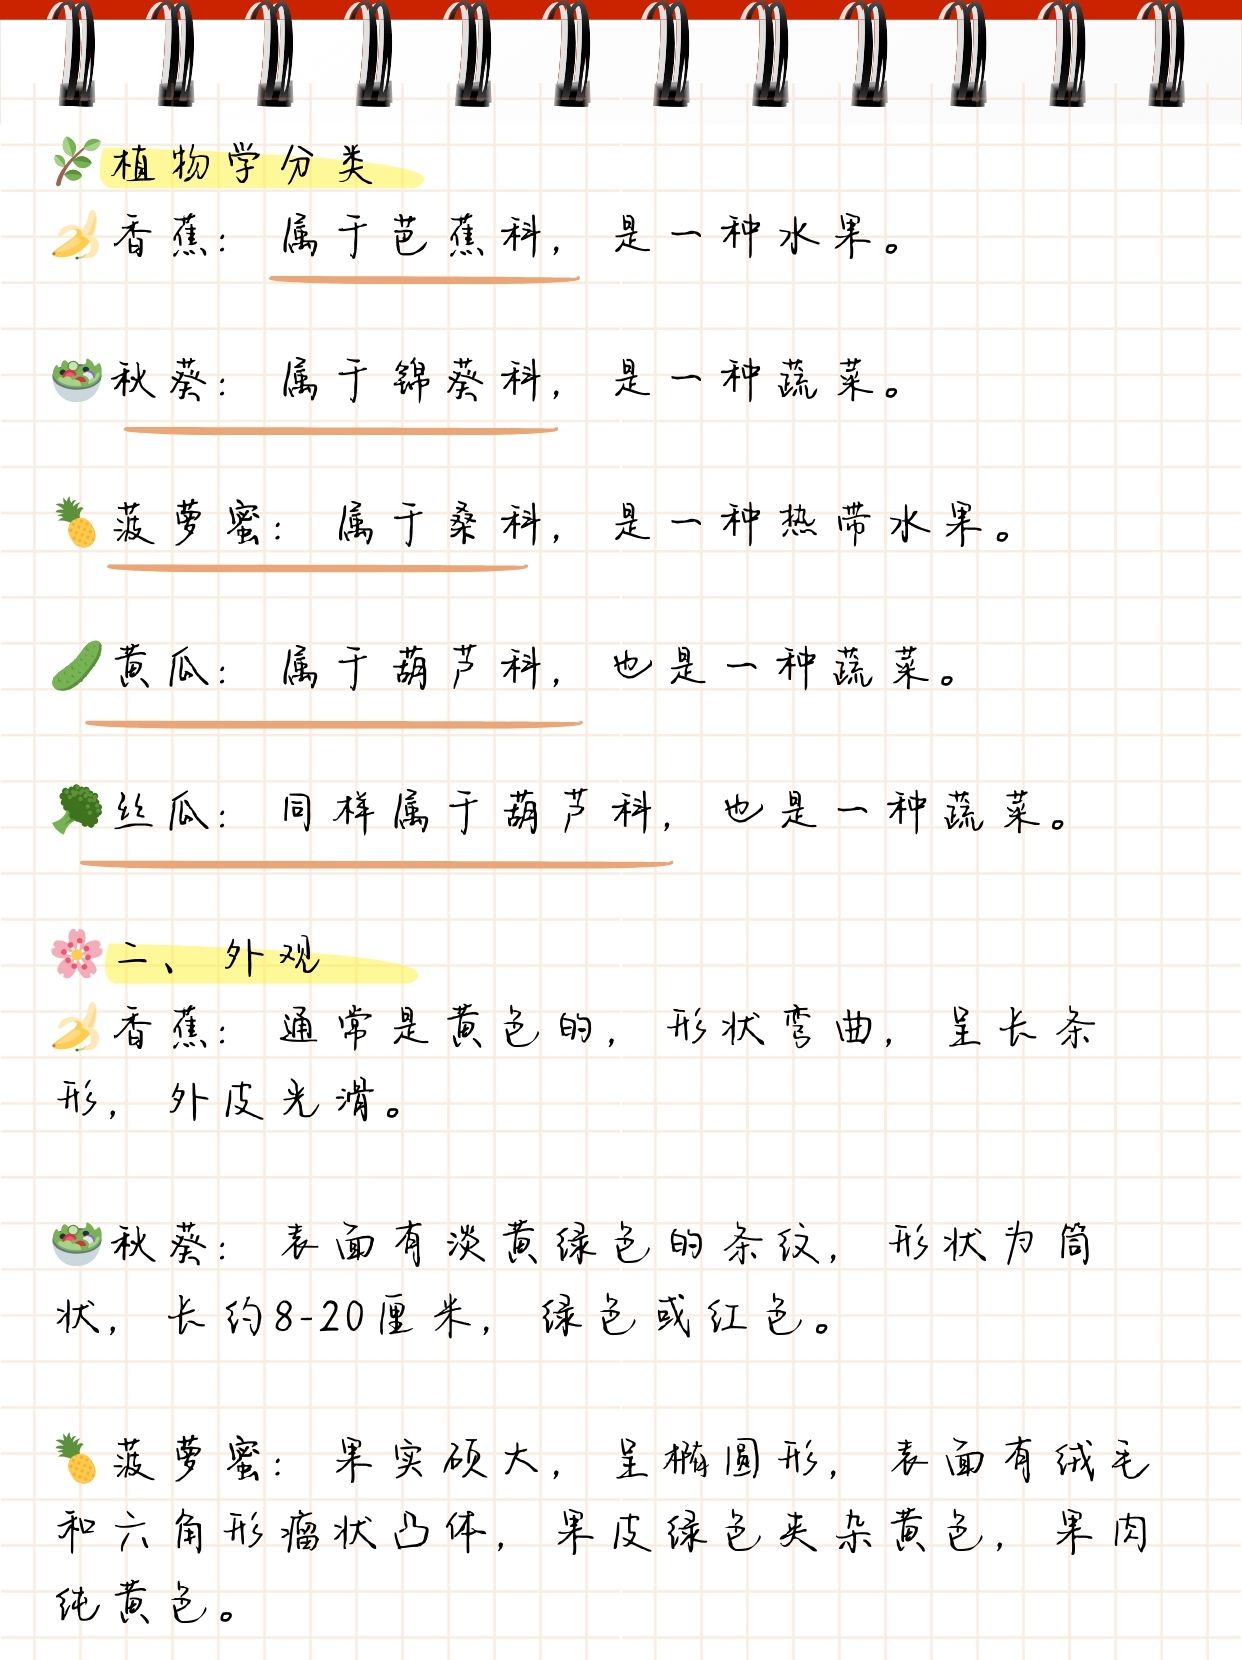 植物学分类
香蕉：属于芭蕉科，是一种水果。
秋葵：属于锦葵科，是一种蔬菜。
菠萝蜜：属于桑科，是一种热带水果。
黄瓜：属于葫芦科，也是一种蔬菜。
丝瓜：同样属于葫芦科，也是一种蔬菜。
二、外观
香蕉：通常是黄色的，形状弯曲，呈长条
形，外皮光滑。
秋葵：表面有淡黄绿色的条纹，形状为筒
状，长约8-20厘米，绿色或红色。
菠萝蜜：果实硕大，呈椭圆形，表面有绒毛
和六角形瘤状凸体，果皮绿色夹杂黄色，果肉
纯黄色。